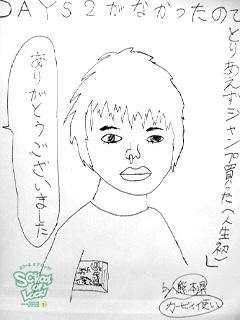 DAYS2がなかったので
とりあえずジャンプ買った(人生初)」
ありがとうございました
by熊本県
カービィ使い
SCHOOL OF LOCK!